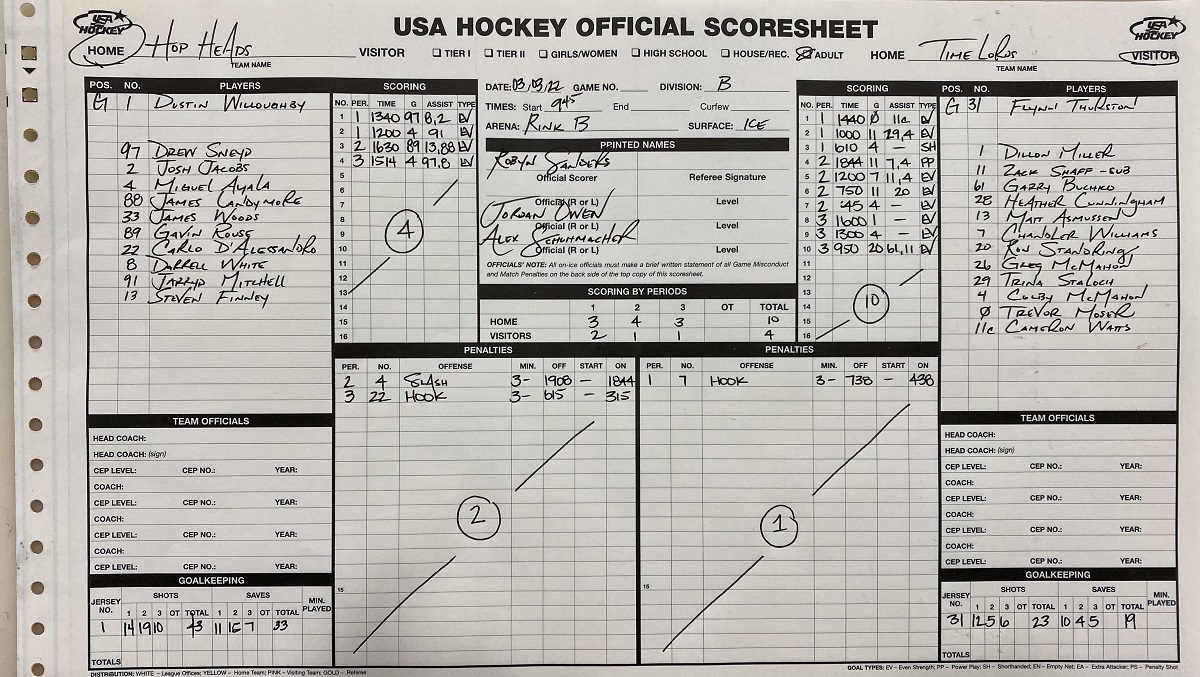 USA HOCKEY OFFICIAL SCORESHEET
USA HOCKEY
HOME HOP HEADS VISITOR
TEAM NAME
☐ TIER I ☐ TIER II ☐ GIRLS/WOMEN ☐ HIGH SCHOOL ☐ HOUSE/REC. ☒ ADULT
HOME TIME LORDS VISITOR
TEAM NAME
USA HOCKEY
POS. NO. PLAYERS
G 1 DUSTIN WILLOUGHBY
97 DREW SNEYD
2 JOSH JACOBS
4 MIGUEL AYALA
88 JAMES CANDYMORE
33 JAMES WOODS
89 GAVIN ROUSE
22 CARLO D'ALESSANDRO
8 DARRELL WHITE
91 JARRYD MITCHELL
13 STEVEN FINNEY
SCORING
NO. PER. TIME G ASSIST TYPE
1 1 1340 97 8,2 EV
2 1 1200 4 91 EV
3 2 1630 89 13,88 EV
4 3 1514 4 97,8 EV
5
6
7
8
9
10
11
12
13
14
15
16
4
DATE: 03,03,22 GAME NO. DIVISION: B
TIMES: Start 945 End Curfew
ARENA: RINK B SURFACE: ICE
PRINTED NAMES
ROBYN SANDERS
Official Scorer Referee Signature
Official (R or L) Level
JORDAN OWEN
Official (R or L) Level
ALEX SCHUHMACHER
Official (R or L) Level
OFFICIALS' NOTE: All on-ice officials must make a brief written statement of all Game Misconduct
and Match Penalties on the back side of the top copy of this scoresheet.
SCORING BY PERIODS
1 2 3 OT TOTAL
HOME 3 4 3 10
VISITORS 2 1 1 4
SCORING
NO. PER. TIME G ASSIST TYPE
1 1 1440 Ø 11c EV
2 1 1000 11 29,4 EV
3 1 610 4 — SH
4 2 1844 11 7,4 PP
5 2 1200 7 11,4 EV
6 2 750 11 20 EV
7 2 :45 4 — EV
8 3 1600 1 — EV
9 3 1300 4 — EV
10 3 950 20 61,11 EV
11
12
13
14
15
16
10
POS. NO. PLAYERS
G 31 FLYNN THURSTON
1 DILLON MILLER
11 ZACK SHAFF -SUB
61 GARRY BUCHKO
28 HEATHER CUNNINGHAM
13 MATT ASMUSSEN
7 CHANDLER WILLIAMS
20 RON STANDRING
26 GREG MCMAHON
29 TRINA STALOCH
4 COLBY MCMAHON
Ø TREVOR MOSER
11c CAMERON WATTS
PENALTIES
PER. NO. OFFENSE MIN. OFF START ON
2 4 SLASH 3- 1908 - 1844
3 22 HOOK 3- 615 - 315
2
15
PENALTIES
PER. NO. OFFENSE MIN. OFF START ON
1 7 HOOK 3- 738 - 438
1
15
TEAM OFFICIALS
HEAD COACH:
HEAD COACH: (sign)
CEP LEVEL: CEP NO.: YEAR:
COACH:
CEP LEVEL: CEP NO.: YEAR:
COACH:
CEP LEVEL: CEP NO.: YEAR:
COACH:
CEP LEVEL: CEP NO.: YEAR:
GOALKEEPING
JERSEY NO. SHOTS SAVES MIN. PLAYED
1 2 3 OT TOTAL 1 2 3 OT TOTAL
1 14 19 10 43 11 15 7 33
TOTALS
TEAM OFFICIALS
HEAD COACH:
HEAD COACH: (sign)
CEP LEVEL: CEP NO.: YEAR:
COACH:
CEP LEVEL: CEP NO.: YEAR:
COACH:
CEP LEVEL: CEP NO.: YEAR:
COACH:
CEP LEVEL: CEP NO.: YEAR:
GOALKEEPING
JERSEY NO. SHOTS SAVES MIN. PLAYED
1 2 3 OT TOTAL 1 2 3 OT TOTAL
31 12 5 6 23 10 4 5 19
TOTALS
DISTRIBUTION: WHITE – League Offices; YELLOW – Home Team; PINK – Visiting Team; GOLD – Referee
GOAL TYPES: EV – Even Strength; PP – Power Play; SH – Shorthanded; EN – Empty Net; EA – Extra Attacker; PS – Penalty Shot